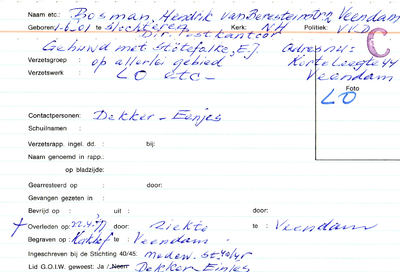 Naam etc.: Bosman, Hendrik van Beresteinstr, Veendam
Geboren: 1-6-01 te Slochteren Kerk: N.H. Politiek: V.V.D.
Dir. Postkantoor
Gehuwd met Stötefalke, E.J. Adres nu:
Verzetsgroep : op allerlei gebied Korte Leegte 44
Verzetswerk : LO etc- Veendam
C
Foto
LO
Contactpersonen: Dekker - Eenjes
Schuilnamen :
Verzetsrapp. ingel. dd. : bij:
Naam genoemd in rapp.:
op bladzijde:
Gearresteerd op : door:
Gevangen gezeten in :
Bevrijd op : uit : door:
+ Overleden op: 22.4.77 door: ziekte te : Veendam
Begraven op : te : Veendam
Ingeschreven bij de Stichting 40/45: medew. St. 40/45
Lid G.O.I.W. geweest: Ja / Neen Dekker-Einjes